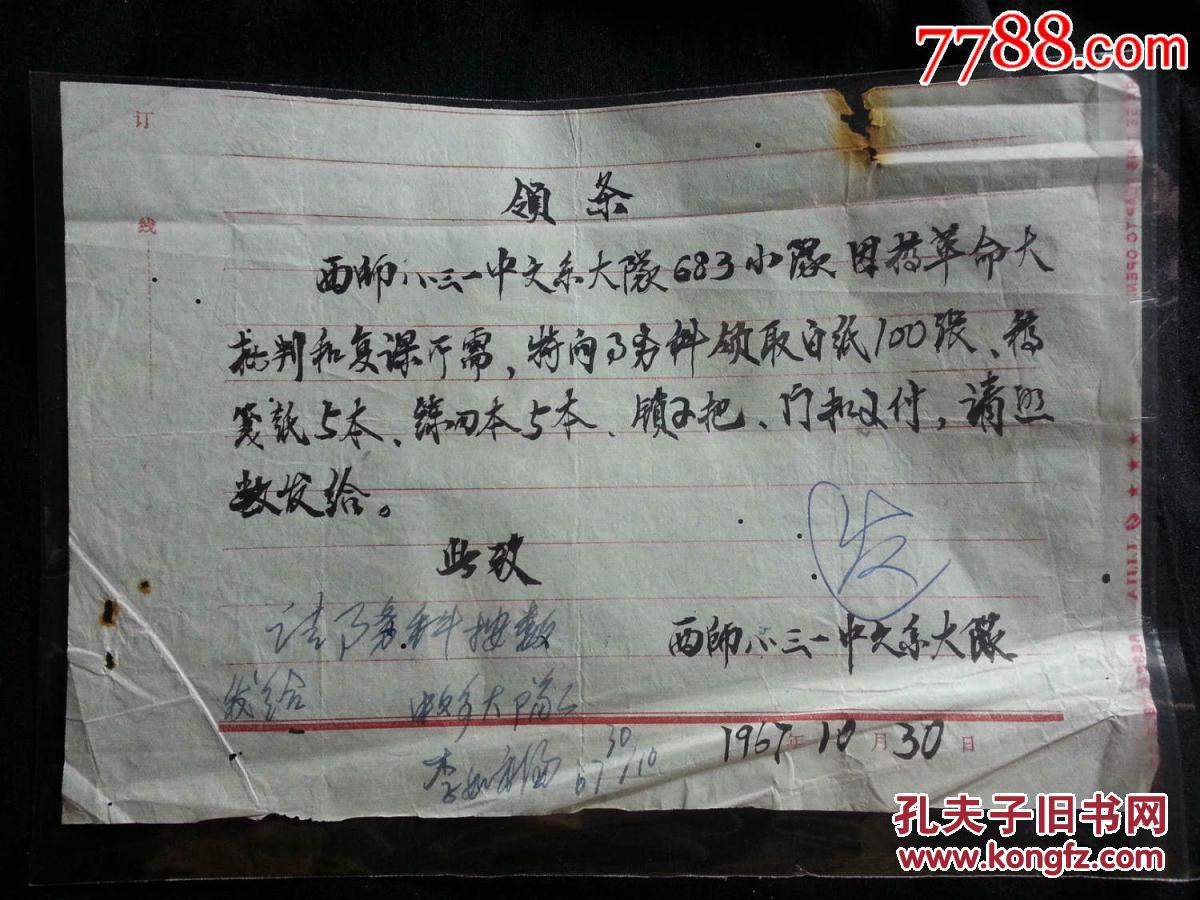 7788.com
订
线
领条
西師八三一中文系大隊683小隊因搞革命大
批判和复课所需,特向总务科领取白纸100张、稿
笺紙5本、練習本5本、锁2把、门扣2付,请照
数发给。
此致
发
请总务科按数
发给
西師八三一中文系大隊
中文系大隊
李 30/10 67
1967年10月30日
孔夫子旧书网
www.kongfz.com